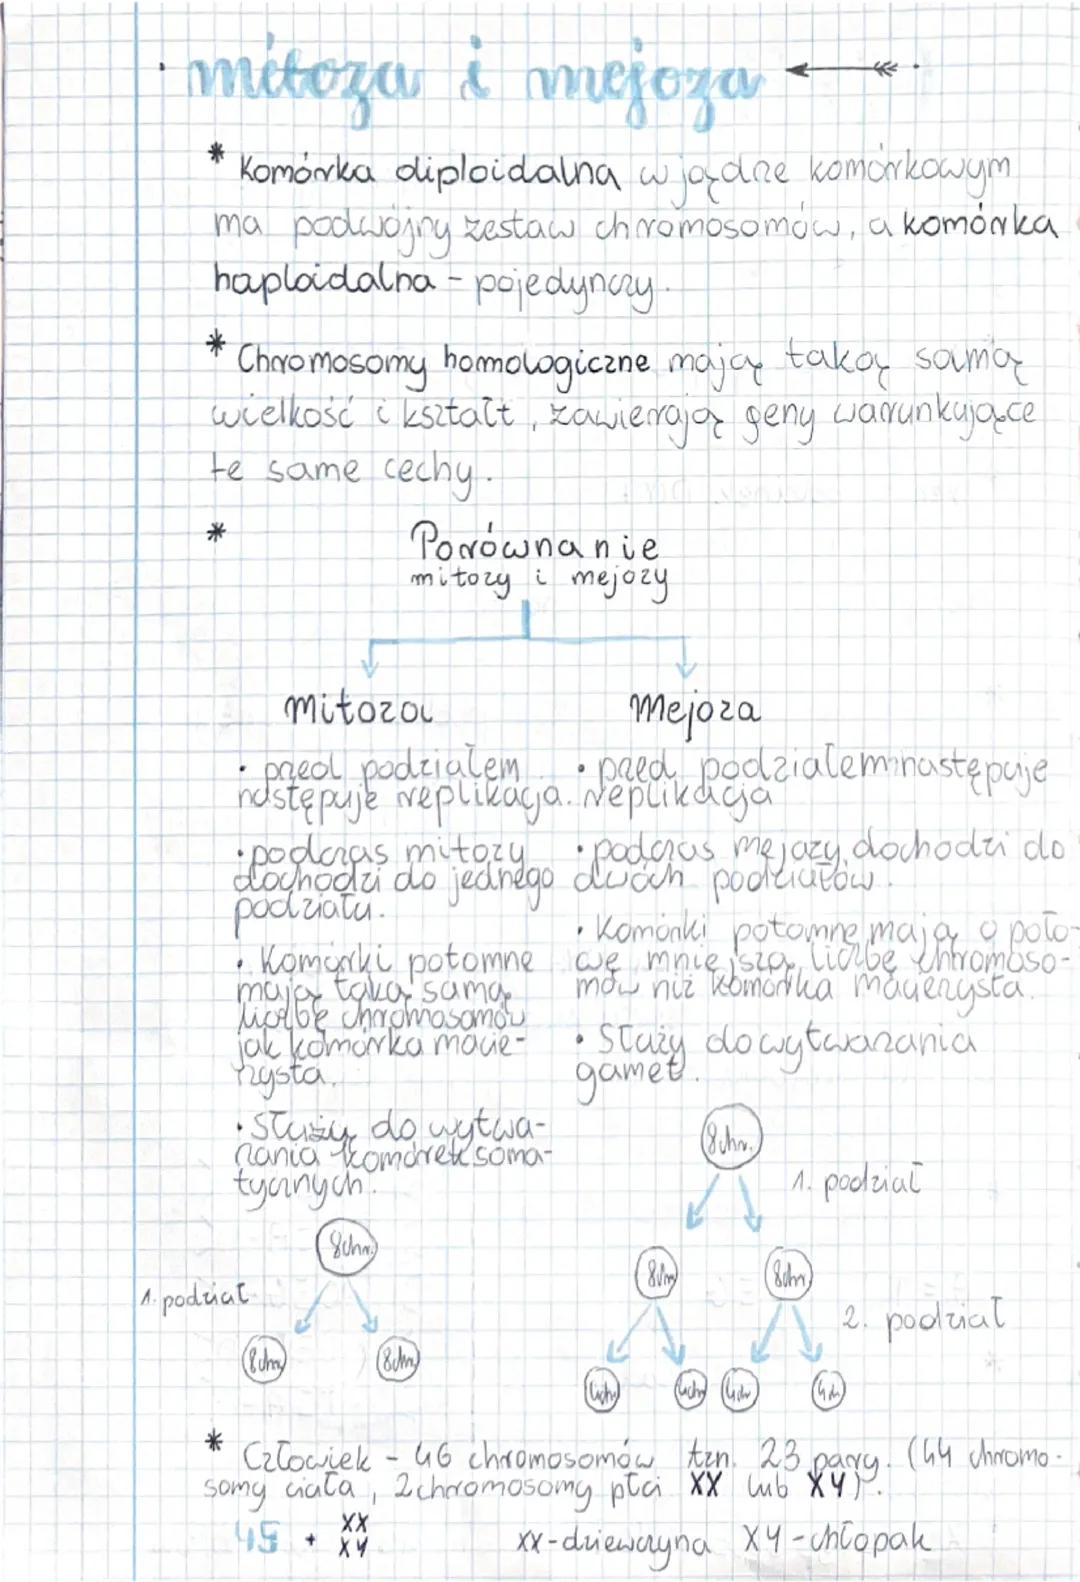 mitoza i mejoza
* Komórka diploidalna w jądrze komórkowym
ma podwójny zestaw chromosomów, a komórka
haploidalna - pojedynczy.
* Chromosomy homologiczne mają taką samą
wielkość i kształt, zawierają geny warunkujące
te same cechy.
* Porównanie
mitozy i mejozy
Mitoza
• przed podziałem
następuje replikacja.
• podczas mitozy
dochodzi do jednego
podziału.
• Komórki potomne
mają taką samą
liczbę chromosomów
jak komórka macie-
rzysta.
• Służy do wytwa-
rzania komórek soma-
tycznych.
8chr.
1. podział
8chr.
8chr.
Mejoza
• przed podziałem następuje
replikacja
• podczas mejozy dochodzi do
dwóch podziałów.
• Komórki potomne mają o poło-
wę mniejszą liczbę chromoso-
mów niż komórka macierzysta.
• Służy do wytwarzania
gamet.
8chr.
1. podział
8chr
8chr
2. podział
4chr
4chr
4chr
4chr
* Człowiek - 46 chromosomów tzn. 23 pary. (44 chromo-
somy ciała, 2 chromosomy płci XX lub XY).
XX
XY
xx-dziewczyna XY-chłopak